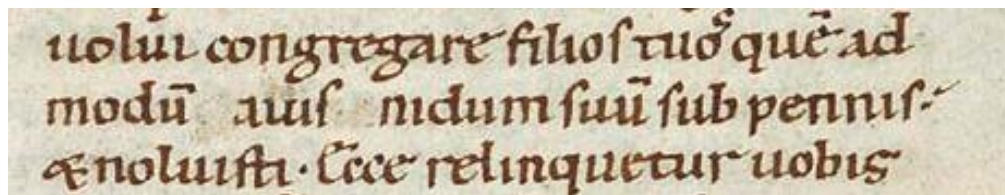 uolui congregare filios tuos quē ad
modū auis nidum suū sub pennis.
& noluisti. Ecce relinquetur uobis